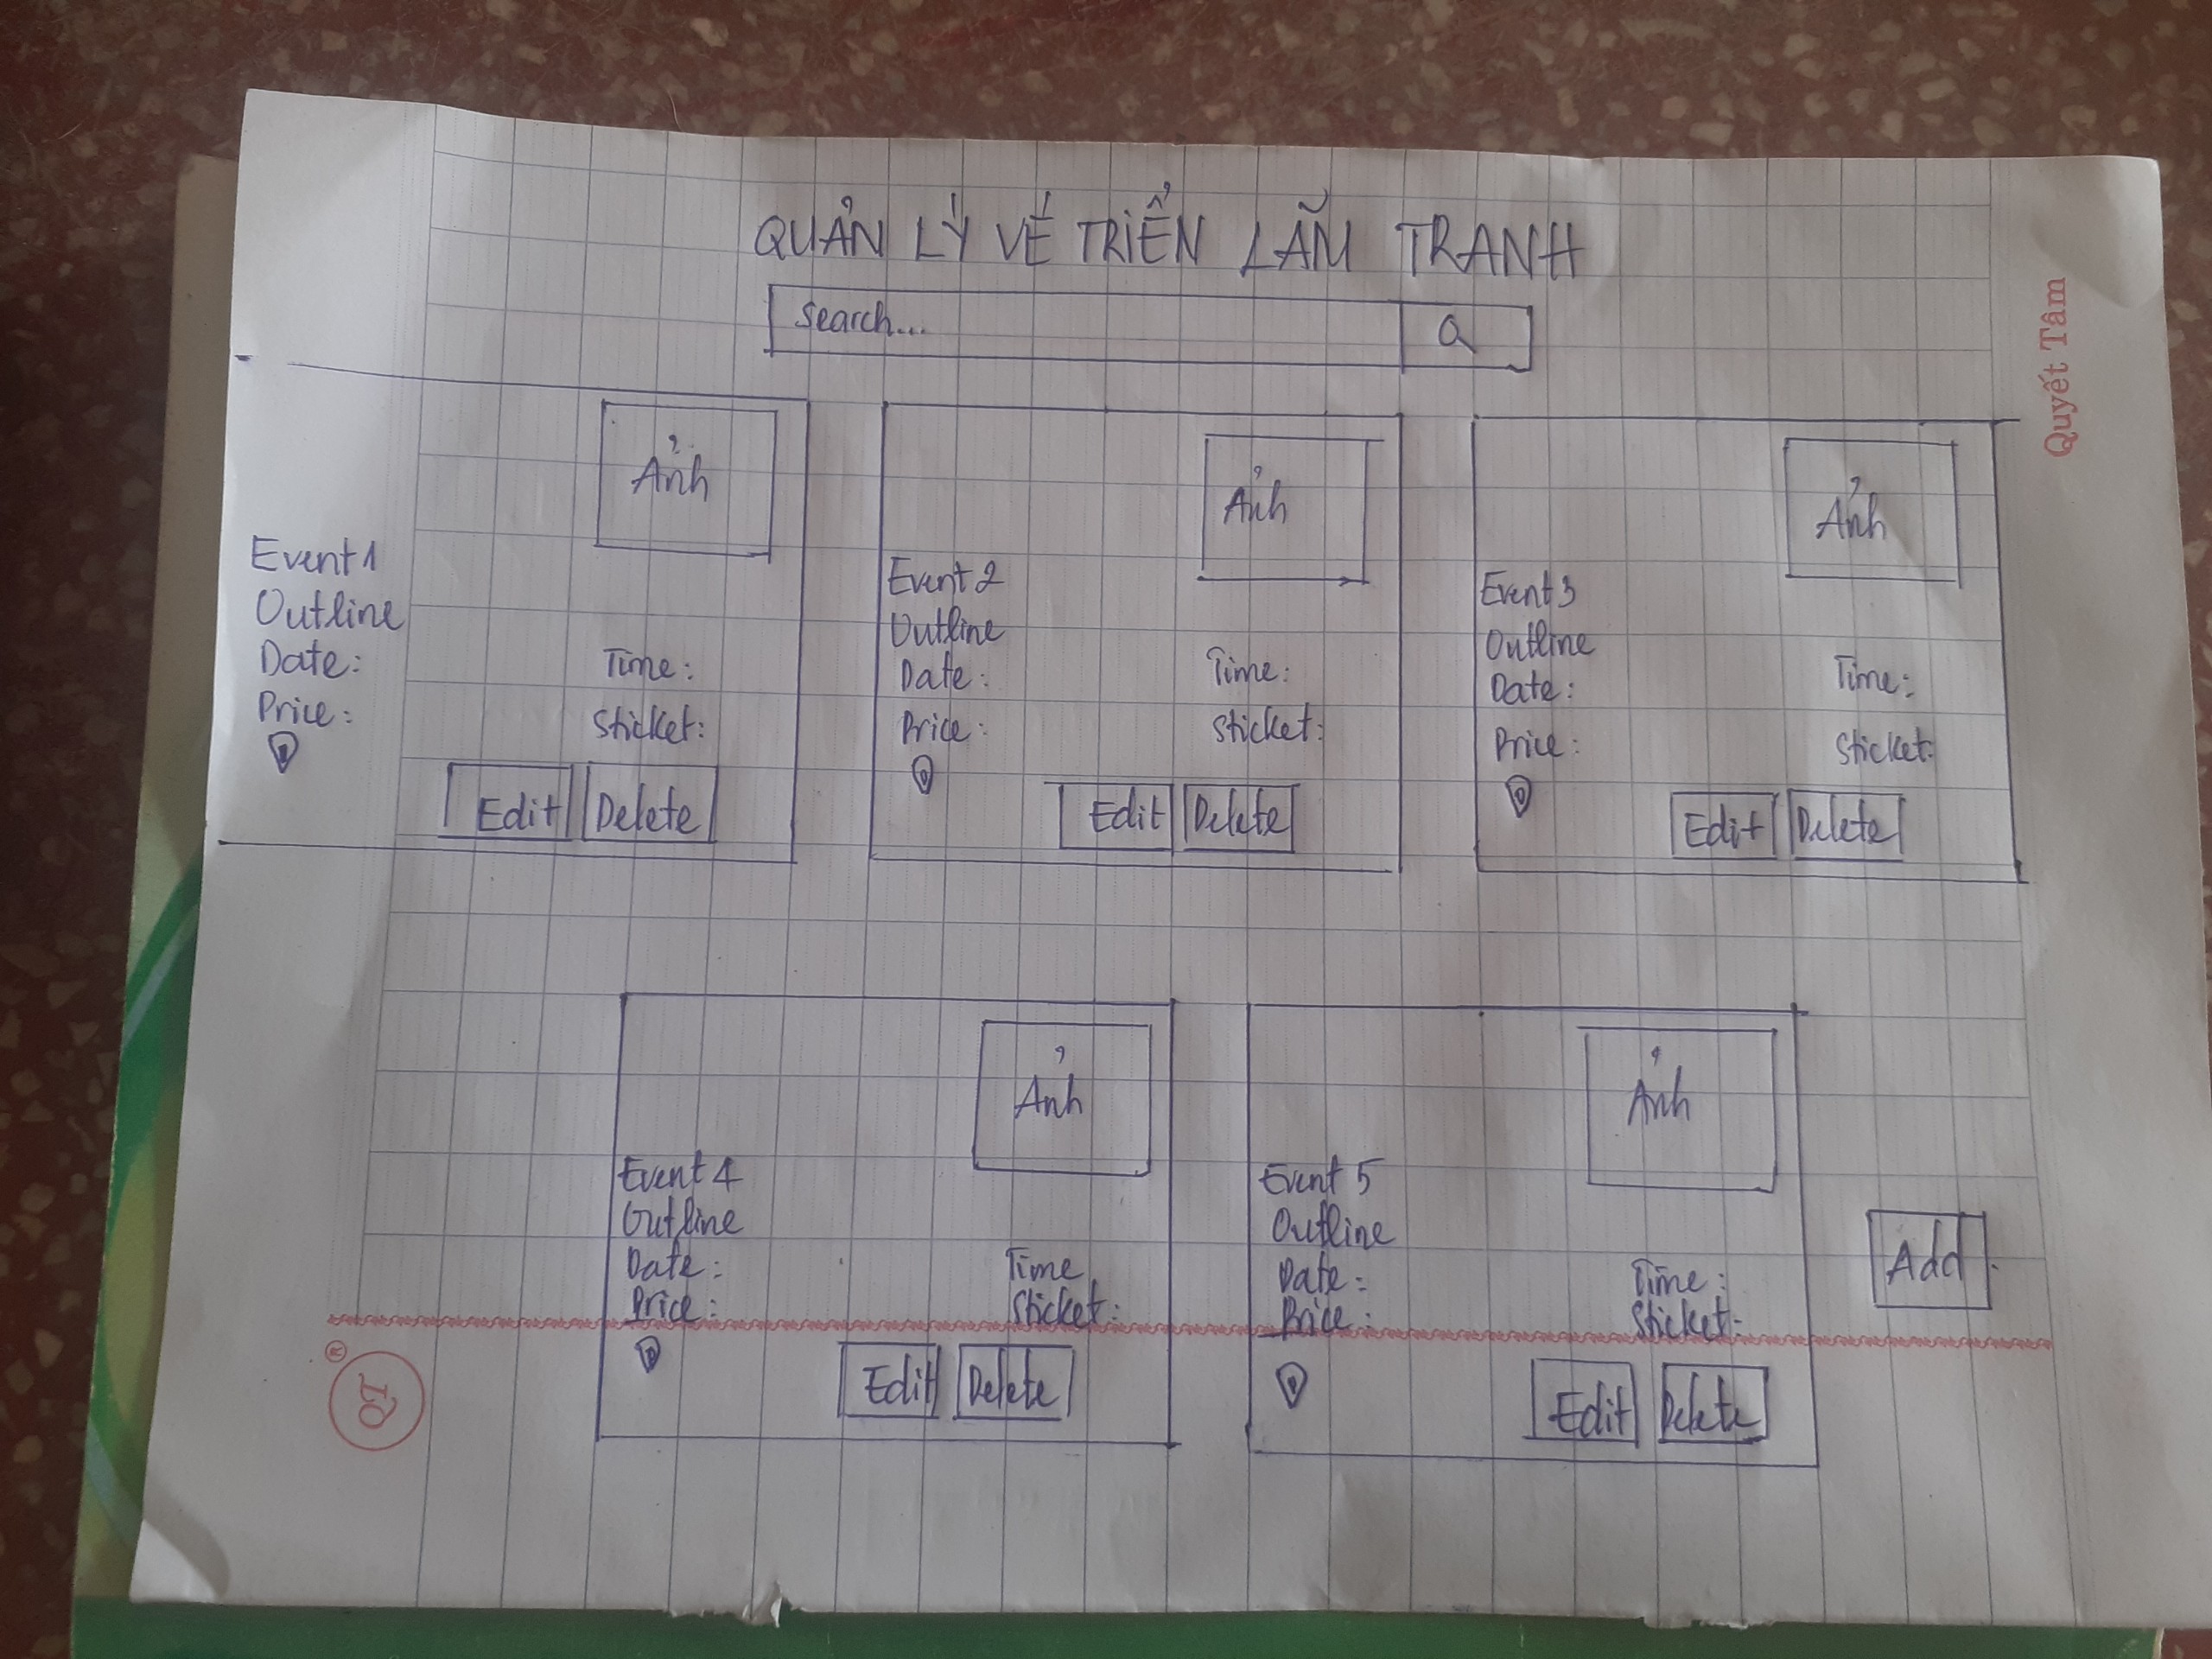 QUẢN LÝ VÉ TRIỂN LÃM TRANH
Search...
Quyết Tâm
Ảnh
Event 1
Outline
Date: Time:
Price: Sticket:
Edit Delete
Ảnh
Event 2
Outline
Date: Time:
Price: Sticket:
Edit Delete
Ảnh
Event 3
Outline
Date: Time:
Price: Sticket:
Edit Delete
Ảnh
Event 4
Outline
Date: Time
Price: Sticket:
Edit Delete
Ảnh
Event 5
Outline
Date: Time:
Price: Sticket:
Edit Delete
Add